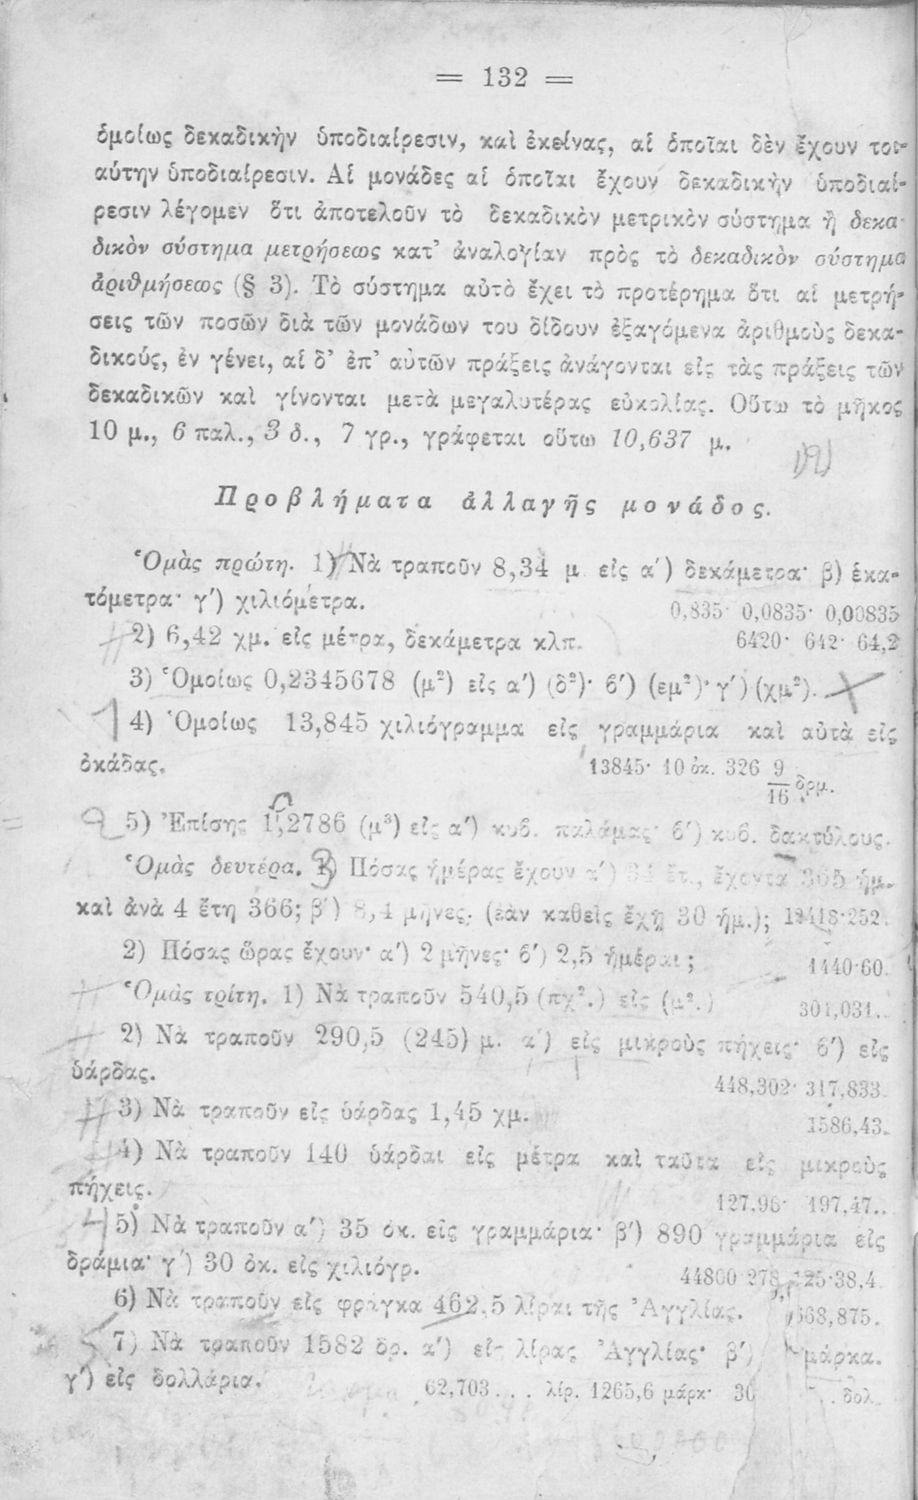 = 132 =
ὁμοίως δεκαδικὴν ὑποδιαίρεσιν, καὶ ἐκείνας, αἱ ὁποῖαι δὲν ἔχουν τοι-
αύτην ὑποδιαίρεσιν. Αἱ μονάδες αἱ ὁποῖαι ἔχουν δεκαδικὴν ὑποδιαί-
ρεσιν λέγομεν ὅτι ἀποτελοῦν τὸ δεκαδικὸν μετρικὸν σύστημα ἢ δεκα-
δικὸν σύστημα μετρήσεως κατ' ἀναλογίαν πρὸς τὸ δεκαδικὸν σύστημα
ἀριθμήσεως (§ 3). Τὸ σύστημα αὐτὸ ἔχει τὸ προτέρημα ὅτι αἱ μετρή-
σεις τῶν ποσῶν διὰ τῶν μονάδων του δίδουν ἐξαγόμενα ἀριθμοὺς δεκα-
δικούς, ἐν γένει, αἱ δ' ἐπ' αὐτῶν πράξεις ἀνάγονται εἰς τὰς πράξεις τῶν
δεκαδικῶν καὶ γίνονται μετὰ μεγαλυτέρας εὐκολίας. Οὕτω τὸ μῆκος
10 μ., 6 παλ., 3 δ., 7 γρ., γράφεται οὕτω 10,637 μ.
Προβλήματα ἀλλαγῆς μονάδος.
Ὁμὰς πρώτη. 1) Νὰ τραποῦν 8,34 μ εἰς α΄) δεκάμετρα· β) ἑκα-
τόμετρα· γ΄) χιλιόμετρα. 0,835· 0,0835· 0,00835
2) 6,42 χμ. εἰς μέτρα, δεκάμετρα κλπ. 6420· 642· 64,2
3) Ὁμοίως 0,2345678 (μ²) εἰς α΄) (δ²)· β΄) (εμ²)· γ΄) (χμ²).
4) Ὁμοίως 13,845 χιλιόγραμμα εἰς γραμμάρια καὶ αὐτὰ εἰς
ὀκάδας. 13845· 10 ὀκ. 326 9/16 δρμ.
5) Ἐπίσης 1,2786 (μ³) εἰς α΄) κυβ. παλάμας· β΄) κυβ. δακτύλους.
Ὁμὰς δευτέρα. 1) Πόσας ἡμέρας ἔχουν α΄) 34 ἔτ., ἔχοντα 365 ἡμ.
καὶ ἀνὰ 4 ἔτη 366; β΄) 8,4 μῆνες. (ἐὰν καθεὶς ἔχῃ 30 ἡμ.); 12418·252.
2) Πόσας ὥρας ἔχουν· α΄) 2 μῆνες· β΄) 2,5 ἡμέραι; 1440·60.
Ὁμὰς τρίτη. 1) Νὰ τραποῦν 540,5 (πχ².) εἰς (μ².) 304,031..
2) Νὰ τραποῦν 290,5 (245) μ. α΄) εἰς μικροὺς πήχεις· β΄) εἰς
ὑάρδας. 448,302· 317,833.
3) Νὰ τραποῦν εἰς ὑάρδας 1,45 χμ. 1586,43.
4) Νὰ τραποῦν 140 ὑάρδαι εἰς μέτρα καὶ ταῦτα εἰς μικροὺς
πήχεις. 127,96· 197,47..
5) Νὰ τραποῦν α΄) 35 ὀκ. εἰς γραμμάρια· β΄) 890 γραμμάρια εἰς
δράμια· γ΄) 30 ὀκ. εἰς χιλιόγρ. 44800 278,125·38,4.
6) Νὰ τραποῦν εἰς φράγκα 462,5 λίραι τῆς Ἀγγλίας. 668,875.
7) Νὰ τραποῦν 1582 δρ. α΄) εἰς λίρας Ἀγγλίας· β΄) μάρκα.
γ΄) εἰς δολλάρια. 62,703... λίρ. 1265,6 μάρκ· 30 . δολ.